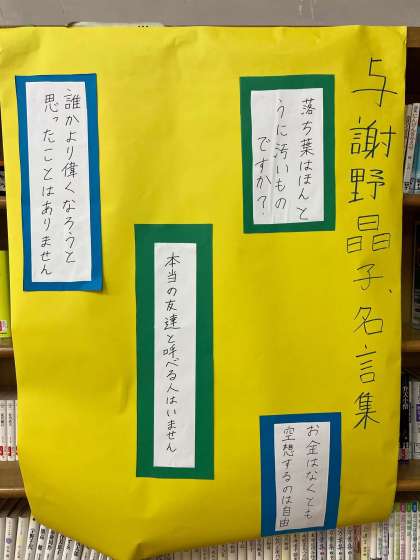 与謝野晶子、名言集
落ち葉はほんと
うに汚いもの
ですか？
誰かより偉くなろうと
思ったことはありません
本当の友達と呼べる人はいません
お金はなくとも
空想するのは自由